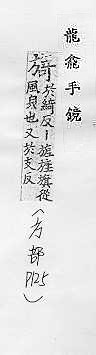 龍龕手鏡
旖
於綺反丨旎旌旗從
風皃也又於支反
(方部 P125)